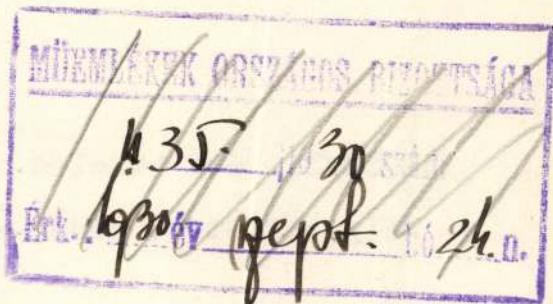 MŰEMLÉKEK ORSZÁGOS BIZOTTSÁGA
435. 30 szám
Érk. 1930 év szept. hó 24. n.